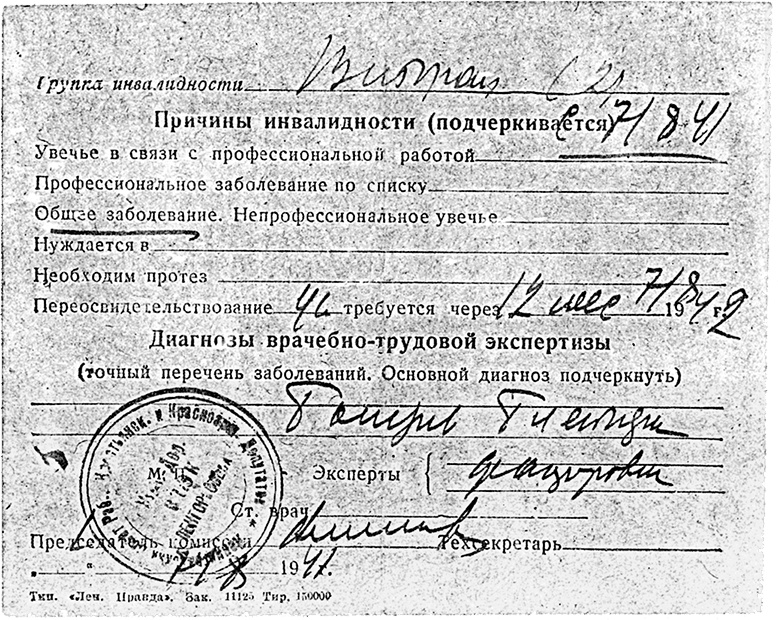 Группа инвалидности Вторая (2)
Причины инвалидности (подчеркивается) с 7/8-41
Увечье в связи с профессиональной работой
Профессиональное заболевание по списку
Общее заболевание. Непрофессиональное увечье
Нуждается в
Необходим протез
Переосвидетельствование требуется через 12 мес 7/8 1942 г.
Диагнозы врачебно-трудовой экспертизы
(точный перечень заболеваний. Основной диагноз подчеркнуть)
Раб., Крестьянск. и Красноарм. Депутатов
Эксперты
Ст. врач
Председатель комиссии Техсекретарь
" " 1941.
Тип. «Лен. Правда». Зак. 11125 Тир. 150000